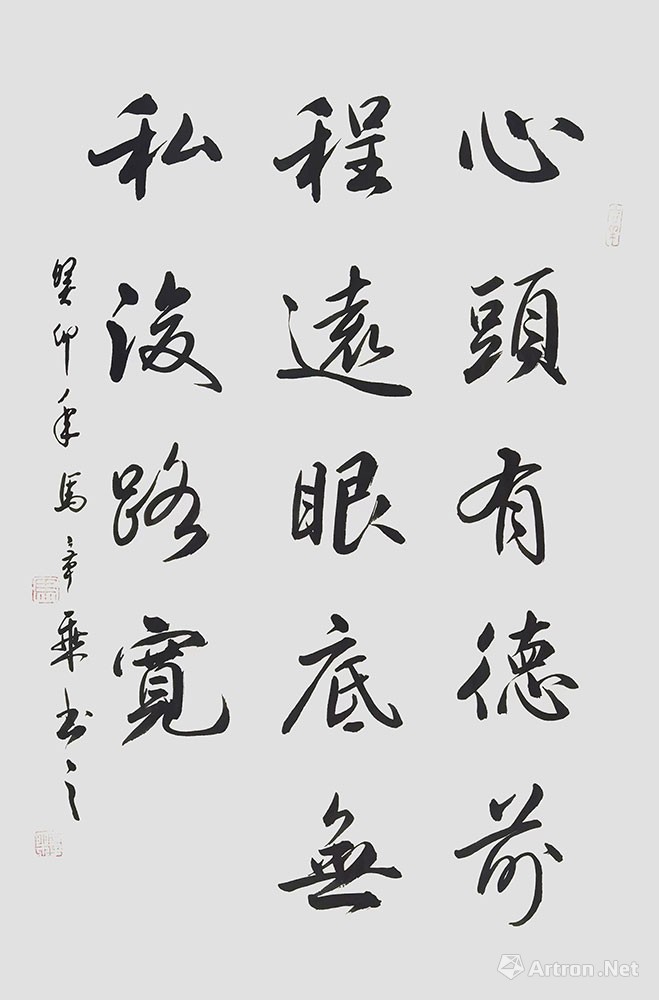 心頭有德前
程遠眼底無
私後路寬
癸卯年馬章乘书之
Artron.Net